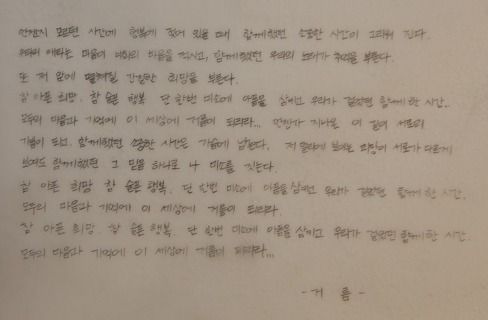 언젠지 모르던 시간에 행복에 젖어 있을 때 함께했던 소중한 시간이 그리워 진다.
우리의 애타는 마음이 너희의 마음을 적시고, 함께했던 우리의 노래가 추억을 부른다.
또 저 앞에 펼쳐질 간절한 희망을 부른다.
참 아픈 희망. 참 슬픈 행복. 단 한번 미소에 아픔을 삼키고 우리가 걸었던 함께 한 시간..
모두의 마음과 기억에 이 세상에 거름이 되리라... 먼 지나 이 길이 서로의
기쁨이 되고. 함께했던 소중한 시간은 가슴에 남는다. 저 멀리 보이는 희망이 서로가 다르게
보여도 함께했던 그 믿음 하나로 나 미소를 짓는다.
참 아픈 희망 참 슬픈 행복. 단 한번 미소에 아픔을 삼키고 우리가 걸었던 함께 한 시간.
모두의 마음과 기억에 이 세상에 거름이 되리라.
참 아픈 희망. 참 슬픈 행복 단 한번 미소에 아픔을 삼키고 우리가 걸었던 함께 한 시간.
모두의 마음과 기억에 이 세상에 거름이 되리라...
- 거 름 -